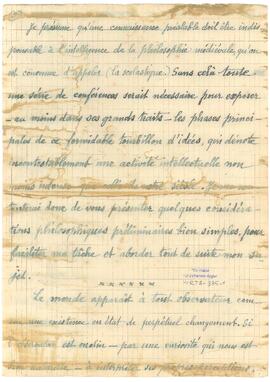 Je présume qu'une connaissance préalable doit être indis
pensable à l'intelligence de la philosophie médiévale, qu'on
est convenu d'appeler (la scolastique). Sans cela toute
une série de conférences serait nécessaire pour exposer
- au moins dans ses grands traits - les phases princi-
pales de ce formidable tourbillon d'idées, qui dénote
incontestablement une activité intellectuelle non
moins intense que celle de notre siècle. Je me con-
tenterai donc de vous présenter quelques considéra
tions philosophiques préliminaires bien simples, pour
faciliter ma tâche et aborder tout de suite mon su
jet.
x x x x x x
Le monde apparaît à tout observateur com
me une existence en état de perpétuel changement. Si
l'observateur est enclin - par une curiosité qui nous est
à interpréter ses propres perceptions